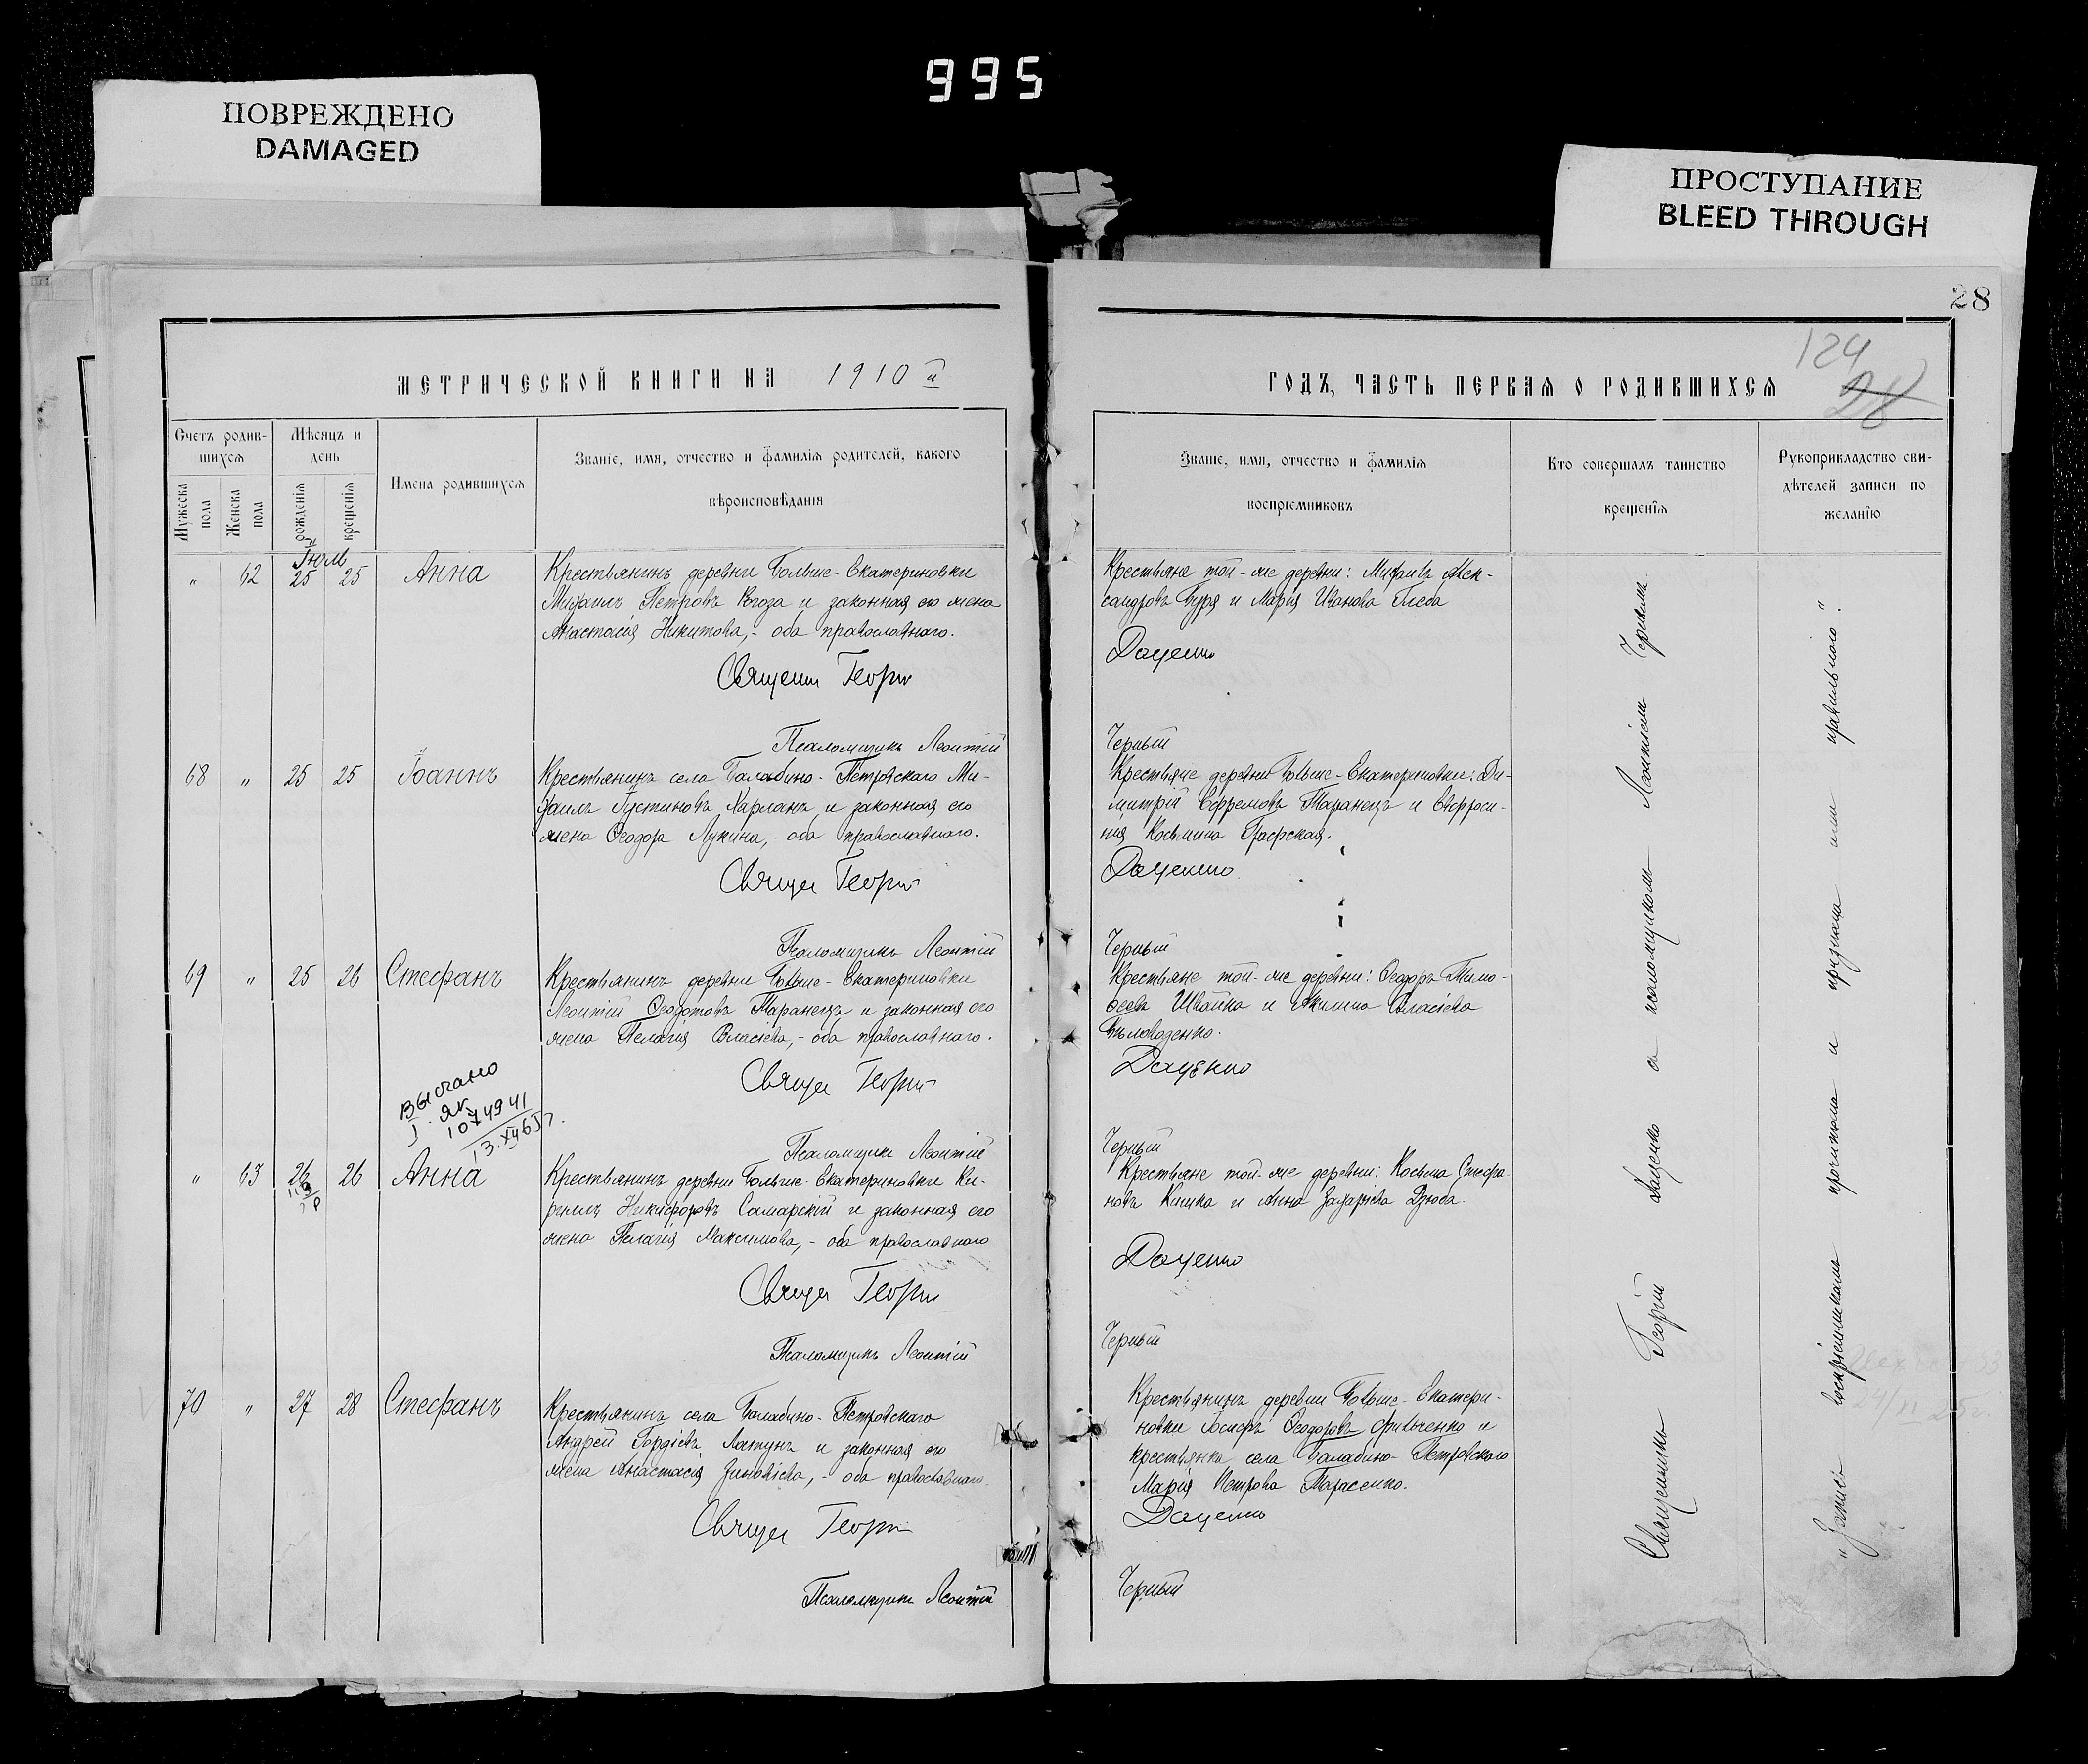 995
ПОВРЕЖДЕНО
DAMAGED
ПРОСТУПАНИЕ
BLEED THROUGH
28
124
28
МЕТРИЧЕСКОЙ КНИГИ НА 1910 й
ГОДЪ, ЧАСТЬ ПЕРВАЯ О РОДИВШИХСЯ
Счетъ родив-
шихся
Мѣсяцъ и
день
Мужеска
пола
Женска
пола
рожденія
крещенія
Имена родившихся
Званіе, имя, отчество и фамилія родителей, какого
вѣроисповѣданія
Званіе, имя, отчество и фамилія
воспріемниковъ
Кто совершалъ таинство
крещенія
Рукоприкладство сви-
дѣтелей записи по
желанію
Іюль
" 62 25 25 Анна
Крестьянинъ деревни Больше-Екатериновки
Михаилъ Петровъ и законная его жена
Анастасія Никитова, - оба православнаго.
Священ Георги
Псаломщикъ Леонтій
Крестьяне той-же деревни: Михаилъ Алек-
сандровъ Буря и Марія Иванова Глеба
Даценко
Черный
68 " 25 25 Іоаннъ
Крестьянинъ села Балабино-Петровскаго Ми-
хаилъ Іустиновъ Харланъ и законная его
жена Ѳеодора Лукина, - оба православнаго.
Свяще Георги
Псаломщикъ Леонтій
Крестьяне деревни Больше-Екатериновки: Ди-
митрій Ефремовъ Таранецъ и Евфроси-
нія Косьмина Графская.
Даценко
Черный
69 " 25 26 Стефанъ
Крестьянинъ деревни Больше-Екатериновки
Леонтій Ѳеодотовъ Таранецъ и законная его
жена Пелагія Власіева, - оба православнаго.
Свяще Георги
Псаломщикъ Леонтій
Крестьяне той-же деревни: Ѳеодоръ Тимо-
ѳеевъ Швайка и Акилина Власіева
Даценко
Черный
Выслано
1074941
" 63 26 26 Анна
Крестьянинъ деревни Больше-Екатериновки Ки-
риллъ Никифоровъ Самарскій и законная его
жена Пелагія Максимова, - оба православнаго
Свяще Георги
Псаломщикъ Леонтій
Крестьяне той-же деревни: Косьма Стефа-
новъ Кишка и Анна Захаріева Дзюба.
Даценко
Черный
70 " 27 28 Стефанъ
Крестьянинъ села Балабино-Петровскаго
Андрей Гордіевъ Лапунъ и законная его
жена Анастасія Зиновіева, - оба православнаго.
Свяще Георги
Псаломщикъ Леонтій
Крестьянинъ деревни Больше-Екатери-
новки Іосифъ Ѳеодоровъ Фильченко и
крестьянка села Балабино-Петровскаго
Марія Петрова Тарасенко.
Даценко
Черный
Священникъ Георгій Даценко съ псаломщикомъ Леонтіемъ Чернымъ
"Запись воспріемниками прочитана и признана ими правильною".